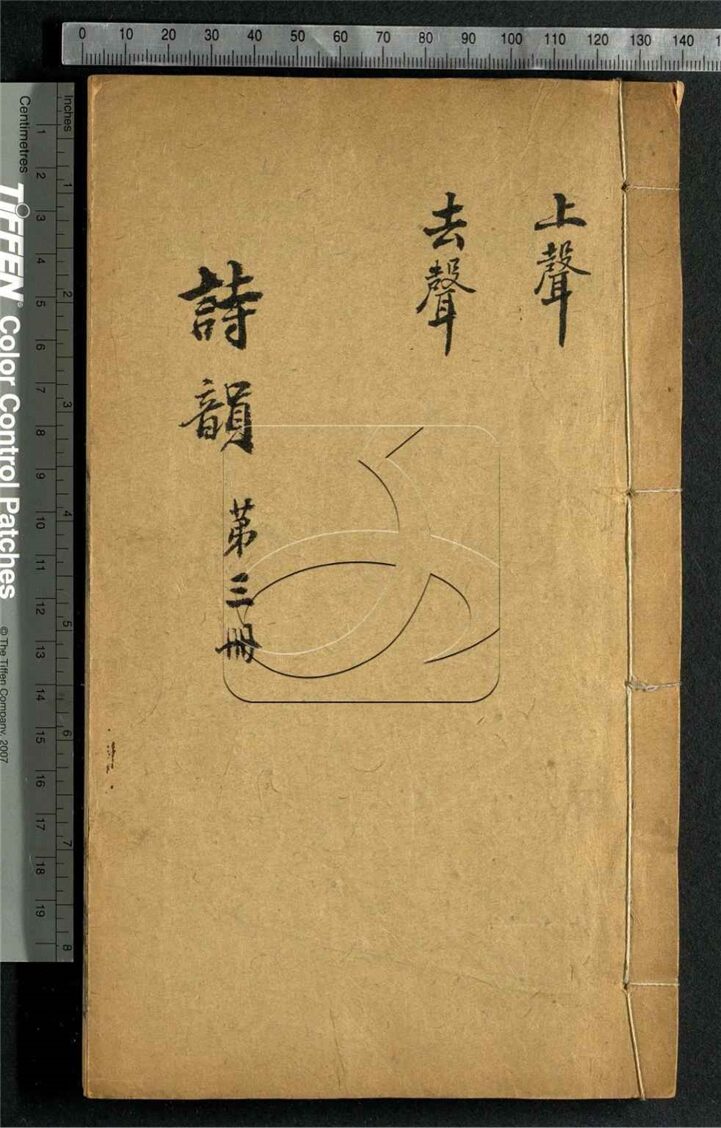 上聲
去聲
詩韻 第三冊
0 10 20 30 40 50 60 70 80 90 100 110 120 130 140
Inches
1 2 3 4 5 6 7 8
Centimetres
1 2 3 4 5 6 7 8 9 10 11 12 13 14 15 16 17 18 19
TIFFEN® Color Control Patches
© The Tiffen Company, 2007